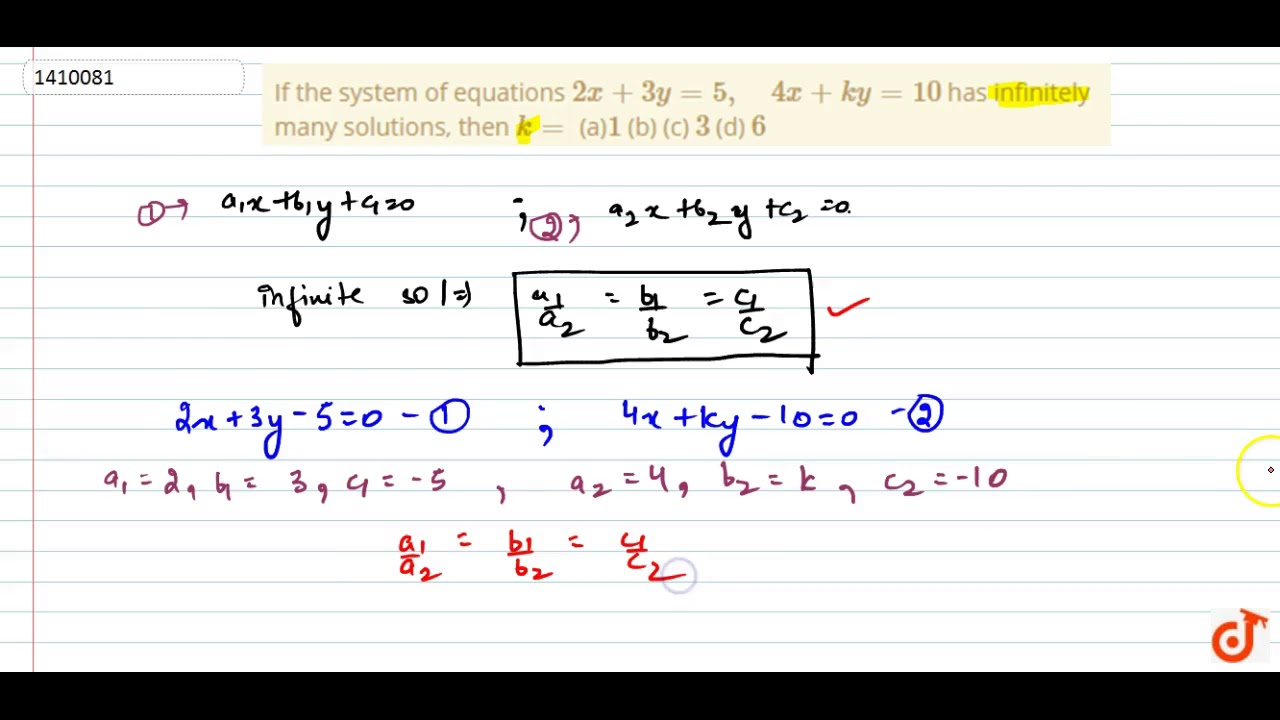 1410081
If the system of equations 2x + 3y = 5, 4x + ky = 10 has infinitely
many solutions, then k = (a)1 (b) (c) 3 (d) 6
① → a₁x + b₁y + c₁ = 0 ; ② , a₂x + b₂y + c₂ = 0.
infinite sol ⇒ a₁/a₂ = b₁/b₂ = c₁/c₂ ✓
2x + 3y - 5 = 0 - ① ; 4x + ky - 10 = 0 - ②
a₁ = 2, b₁ = 3, c₁ = -5 , a₂ = 4, b₂ = k, c₂ = -10
a₁/a₂ = b₁/b₂ = c₁/c₂